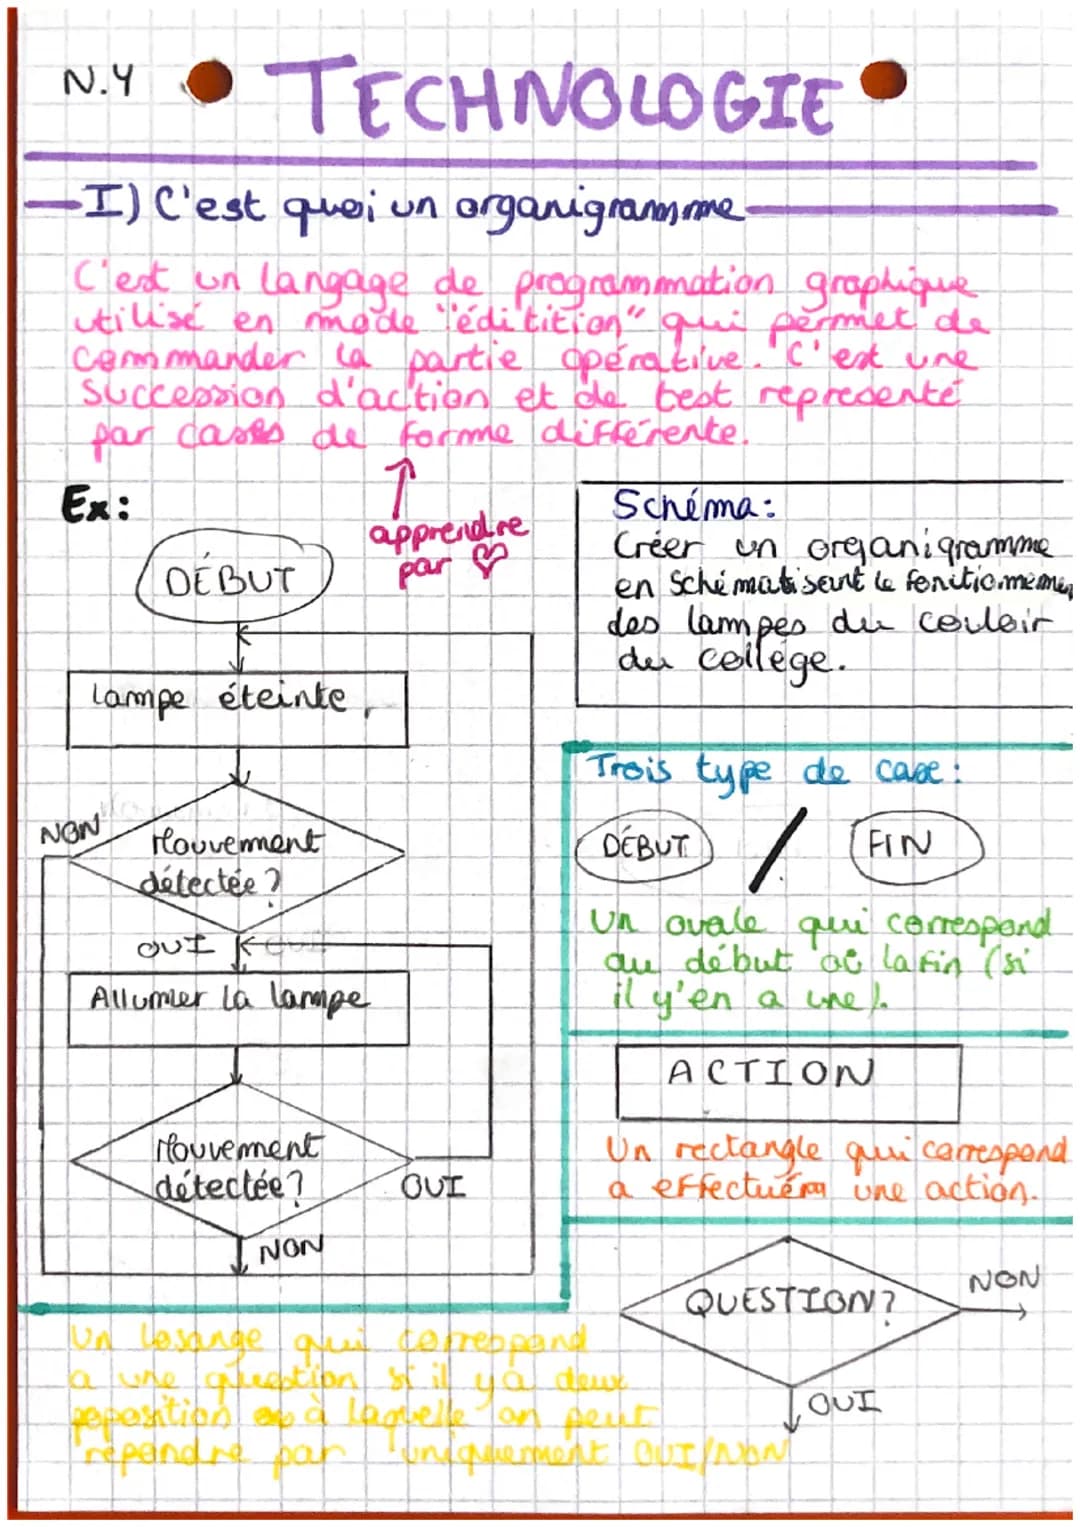 N.Y
TECHNOLOGIE
I) C'est quoi un organigramme
C'est un langage de programmation graphique
utilisé en mode "édi tition" qui permet de
commander la partie opérative. C'est une
succession d'action et de test representé
par cases de forme différente.
Ex:
apprendre
par ♡
DÉBUT
Lampe éteinte
NON
Mouvement
détectée ?
OUI
Allumer la lampe
Mouvement
détectée ?
OUI
NON
Schéma:
Créer un organigramme
en Schématisant le
des lampes du couloir
du collège.
Trois type de case :
DÉBUT / FIN
Un ovale qui correspond
au début où la fin (si
il y'en a une).
ACTION
Un rectangle qui correspond
a effectuer une action.
QUESTION ?
NON
OUI
Un losange qui correspond
a une question si il y a deux
poposition à laquelle on peut
répondre par uniquement OUI/NON